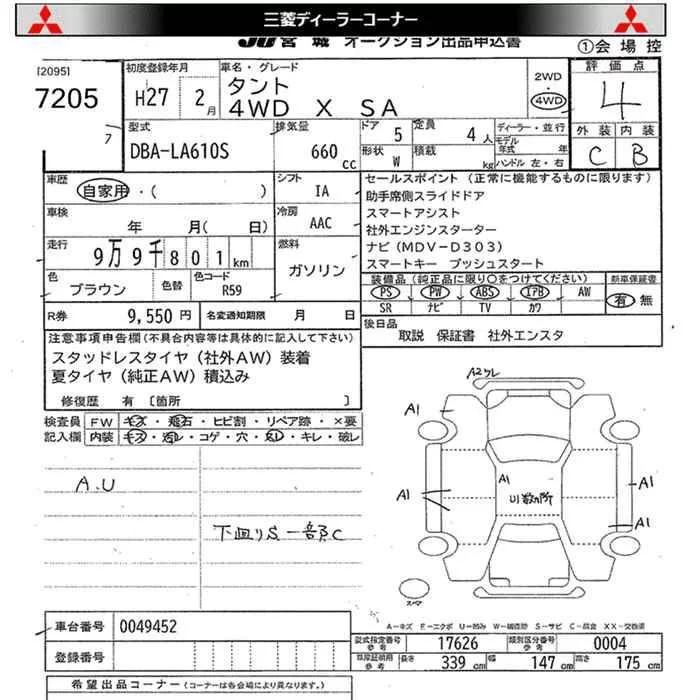 三菱ディーラーコーナー
JU宮城 オークション出品申込書
①会場控
[2095]
7205
7
初度登録年月
H27 2月
車名・グレード
タント
4WD X SA
2WD
・
4WD
評価点
4
外装 内装
C B
型式
DBA-LA610S
排気量
660 cc
ドア 5
定員 4人
形状 W
積載 kg
ディーラー・並行
モデル年式 年
ハンドル 左・右
車歴
自家用・( )
シフト
IA
車検
年 月( 日)
冷房
AAC
走行
9万9千801km
燃料
ガソリン
色
ブラウン
色替
色コード
R59
R券 9,550 円
名変通知期限 月 日
セールスポイント (正常に機能するものに限ります)
助手席側スライドドア
スマートアシスト
社外エンジンスターター
ナビ(MDV-D303)
スマートキー プッシュスタート
装備品(純正品に限り○をつけてください)
PS PW ABS エアB AW
SR ナビ TV カワ
新車保証書
有・無
後日品
取説 保証書 社外エンスタ
注意事項申告欄(不具合内容等は具体的に記入して下さい)
スタッドレスタイヤ(社外AW)装着
夏タイヤ(純正AW)積込み
修復歴 有〔箇所 〕
検査員 FW キズ・飛石・ヒビ割・リペア跡・×要
記入欄 内装 キズ・汚レ・コゲ・穴・凹レ・キレ・破レ
A.U
下回りS一部C
A2ワレ
A1
A1
A1
A1
A1
U1数ヶ所
スペア
A-キズ E-エクボ U-凹み W-補修跡 S-サビ C-腐食 XX-交換済
車台番号 0049452
登録番号
型式指定番号 参考 17626
類別区分番号 参考 0004
車庫証明用 参考 長さ 339 cm 幅 147 cm 高さ 175 cm
希望出品コーナー(コーナーは各会場により異なります。)